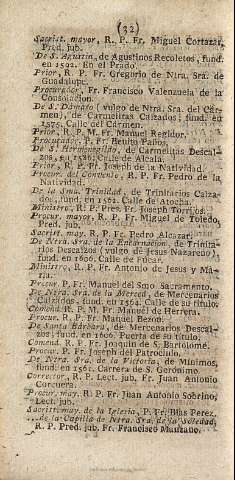 (32)
Sacrist. mayor, R. P. Fr. Miguel Cortazar,
Pred. jub.
De S. Agustin, de Agustinos Recoletos, fund.
en 1592. En el Prado.
Prior, R. P. Fr. Gregorio de Ntra. Sra. de
Guadalupe.
Procurador, Fr. Francisco Valenzuela de la
Consolacion.
De S. Dámaso (vulgo de Ntra. Sra. del Cár-
men), de Carmelitas Calzados; fund. en
1575. Calle del Cármen.
Prior, R. P. M. Fr. Manuel Regidor.
Procurador, P. Fr. Benito Paños.
De S. Hermenegildo, de Carmelitas Descal-
zos, en 1586: Calle de Alcalá.
Prior, R. P. Fr. Joseph de la Natividad.
Procur. del Convento, R. P. Fr. Pedro de la
Natividad.
De la Sma. Trinidad, de Trinitarios Calza-
dos, fund. en 1562. Calle de Atocha.
Ministro, R. P. Pres. Fr. Joseph Torrijos.
Procur. mayor, R. P. Fr. Miguel de Toledo,
Pred. jub.
Sacrist. may. R. P. Fr. Pedro Alcazar.
De Ntra. Sra. de la Encarnacion, de Trinita-
rios Descalzos (vulgo de Jesus Nazareno),
fund. en 1606. Calle de Fúcar.
Ministro, R. P. Fr. Antonio de Jesus y Ma-
ría.
Procur. P. Fr. Manuel del Smo. Sacramento.
De Ntra. Sra. de la Merced, de Mercenarios
Calzados, fund. en 1564. Calle de su título.
Comend. R. P. M. Fr. Manuel de Herrera.
Procur. R. P. Fr. Manuel Bezon.
De Santa Bárbara, de Mercenarios Descal-
zos; fund. en 1606. Puerta de su título.
Comend. R. P. Fr. Joaquin de S. Bartolomé.
Procur. P. Fr. Joseph del Patrocinio.
De Ntra. Sra. de la Victoria, de Mínimos,
fund. en 1561. Carrera de S. Gerónimo.
Corrector, R. P. Lect. jub. Fr. Juan Antonio
Corcuera.
Procur. may. R. P. Fr. Juan Antonio Sobrino,
Lect. jub.
Sacrist. may. de la Iglesia, P. Fr. Blas Perez.
de la Capilla de Ntra. Sra. de la Soledad,
R. P. Pred. jub. Fr. Francisco Manzano.